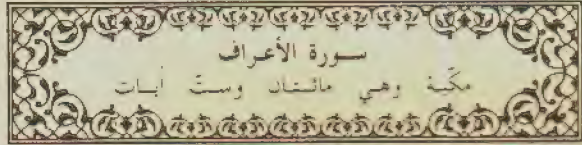 سورة الأعراف
مكّية وهي مائتان وستّ آيات